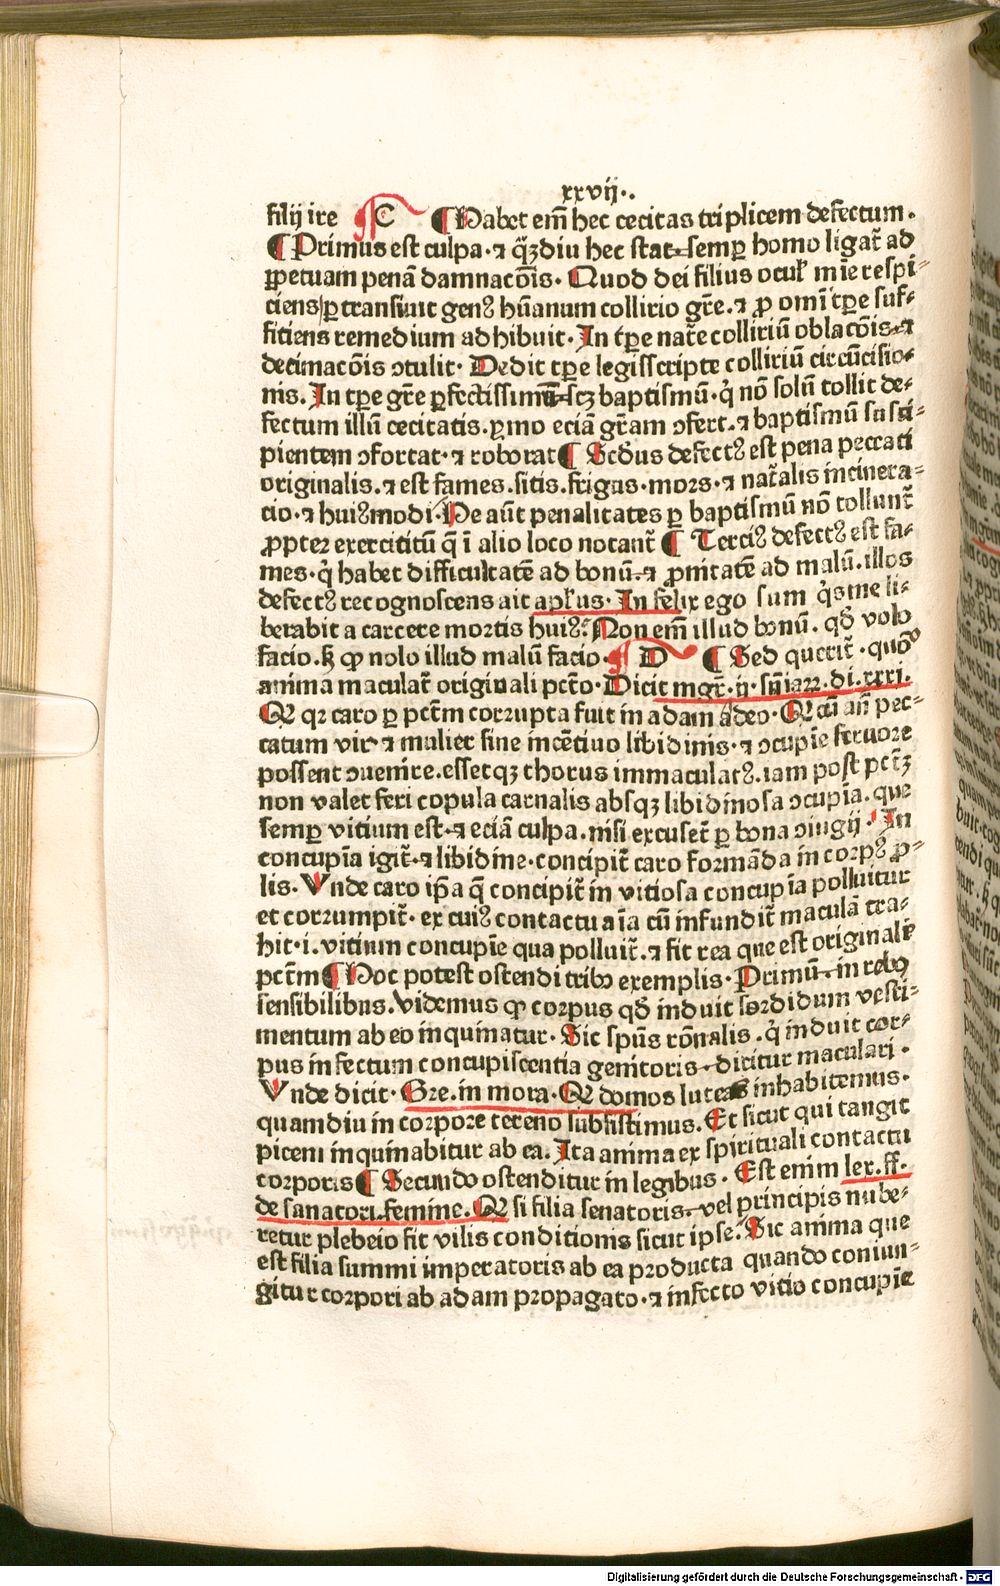 xxvij.
filij ire C ¶ Habet em̄ hec cecitas triplicem defectum.
¶ Primus est culpa. ⁊ q̄ꝫdiu hec stat semꝑ homo ligat᷑ ad
ꝑpetuam penā damnacōis. Quod dei filius ocul' mīe respi-
ciens ꝑtransiuit genꝰ hūanum collirio gr̄e. ⁊ ꝓ omī tꝑe suf-
fitiens remedium adhibuit. In tꝑe nat᷑e colliriū oblacōis ⁊
decimacōis ↄtulit. Dedit tꝑe legisscripte colliriū circūcisio-
nis. In tꝑe gr̄e ꝑfectissimū scꝫ baptismū. q̇ nō solū tollit de-
fectum illiū cecitatis. ꝑmo eciā gr̄am ↄfert. ⁊ baptismū susci-
pientem ↄfortat. ⁊ roborat ¶ Scd̄us defectꝰ est pena peccati
originalis. ⁊ est fames. sitis. frigus. mors. ⁊ nat᷑alis incinera-
cio. ⁊ huiꝰmodi. He aūt penalitates ꝑ baptismū nō tollunt᷑
ꝓpter exercititū q̄ ī alio loco notant᷑ ¶ Terciꝰ defectꝰ est fa-
mes. q̇ habet difficultatē ad bonū. ⁊ ꝓnitatē ad malū. illos
defectꝰ recognoscens ait apl'us. In felix ego sum q̇s me li-
berabit a carcere mortis huiꝰ. Non em̄ illud bonū. qd̄ volo
facio. ẜ ꝙ nolo illud malū facio. D ¶ Sed querit᷑. quō
anima maculat᷑ originali pctō. Dicit mgr̄. ij. sn̄iaꝝ. di. xxxi.
Q qꝛ caro ꝑ pctm̄ corrupta fuit in adam adeo. Q cū an̄ pec-
catum vir ⁊ mulier sine incētiuo libidinis. ⁊ ↄcupīe feruore
possent ↄuenire. essetqꝫ thorus immaculatꝰ. iam post pctꝫ
non valet feri copula carnalis absqꝫ libidinosa ↄcupīa. que
semꝑ vitium est. ⁊ eciā culpa. nisi excuset᷑ ꝑ bona ↄiugij. In
concupīa igit᷑. ⁊ libidine. concipit᷑ caro formāda in corpꝰ ꝓ-
lis. Vnde caro ip̄a q̄ concipit᷑ in vitiosa concupīa polluitur
et corrumpit᷑. ex cuiꝰ contactu aīa cū infundit᷑ maculā tra-
hit. i. vitium concupīe qua polluit᷑. ⁊ fit rea que est originale
pctm̄ ¶ Hoc potest ostendi tribꝰ exemplis. Primū. in rebꝰ
sensibilibus. Videmus ꝙ corpus qd̄ induit sordidum vesti-
mentum ab eo inquinatur. Sic spūs rōnalis. q̇ induit cor-
pus infectum concupiscentia genitoris. dicitur maculari.
Vnde dicit. Gre. in mora. Q domos luteas inhabitemus.
quamdiu in corpore terreno subsistimus. Et sicut qui tangit
picem inquinabitur ab ea. Ita anima ex spirituali contactu
corporis ¶ Secundo ostenditur in legibus. Est enim lex. ff.
de sanatori. femine. Q si filia senatoris. vel principis nube-
retur plebeio fit vilis conditionis sicut ipse. Sic anima que
est filia summi imperatoris ab ea producta quando coniun-
gitur corpori ab adam propagato. ⁊ infecto vitio concupīe
Digitalisierung gefördert durch die Deutsche Forschungsgemeinschaft - DFG